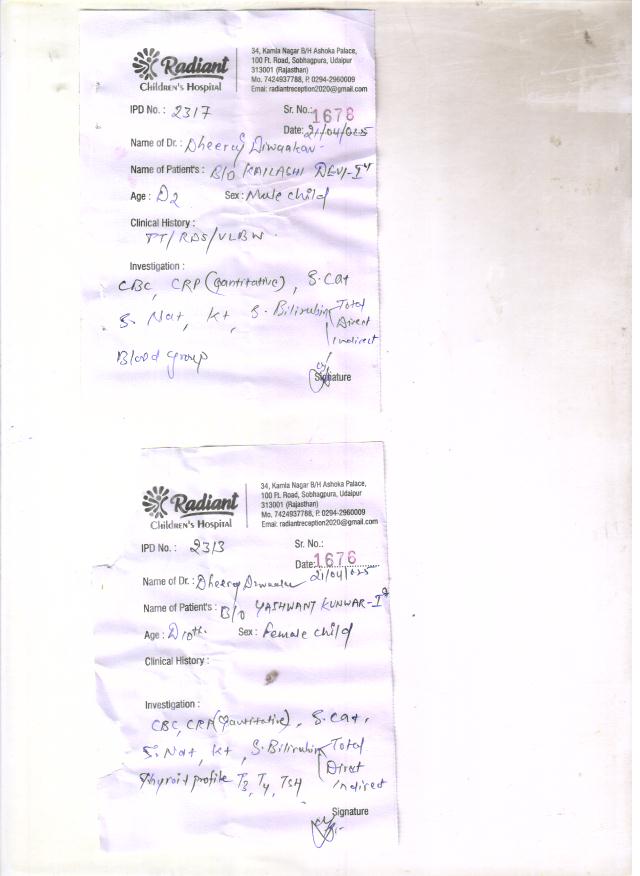 Radiant
CHILDREN'S HOSPITAL
34, Kamla Nagar B/H Ashoka Palace,
100 Ft. Road, Sobhagpura, Udaipur
313001 (Rajasthan)
Mo. 7424937788, P. 0294-2960009
Emai: radiantreception2020@gmail.com
IPD No. : 2317
Sr. No.: 1678
Date: 21/04/025
Name of Dr. : Dheeraj Diwaakar
Name of Patient's : B/O KAILASHI DEVI-Ist
Age : D2 Sex : Male child
Clinical History :
PT/RDS/VLBW
Investigation :
CBC, CRP (Quantitative), S.Ca+
S. Na+, K+, S. Bilirubin Total
Direct
Indirect
Blood group
Signature
Radiant
CHILDREN'S HOSPITAL
34, Kamla Nagar B/H Ashoka Palace,
100 Ft. Road, Sobhagpura, Udaipur
313001 (Rajasthan)
Mo. 7424937788, P. 0294-2960009
Emai: radiantreception2020@gmail.com
IPD No. : 2313
Sr. No.:
1676
Date: 21/04/025
Name of Dr. : Dheeraj Diwaakar
Name of Patient's : B/O YASHWANT KUNWAR-I
Age : D10th. Sex : Female child
Clinical History :
Investigation :
CBC, CRP (Quantitative), S.Ca+,
S. Na+, K+, S. Bilirubin Total
Direct
Indirect
Thyroid profile T3, T4, TSH
Signature